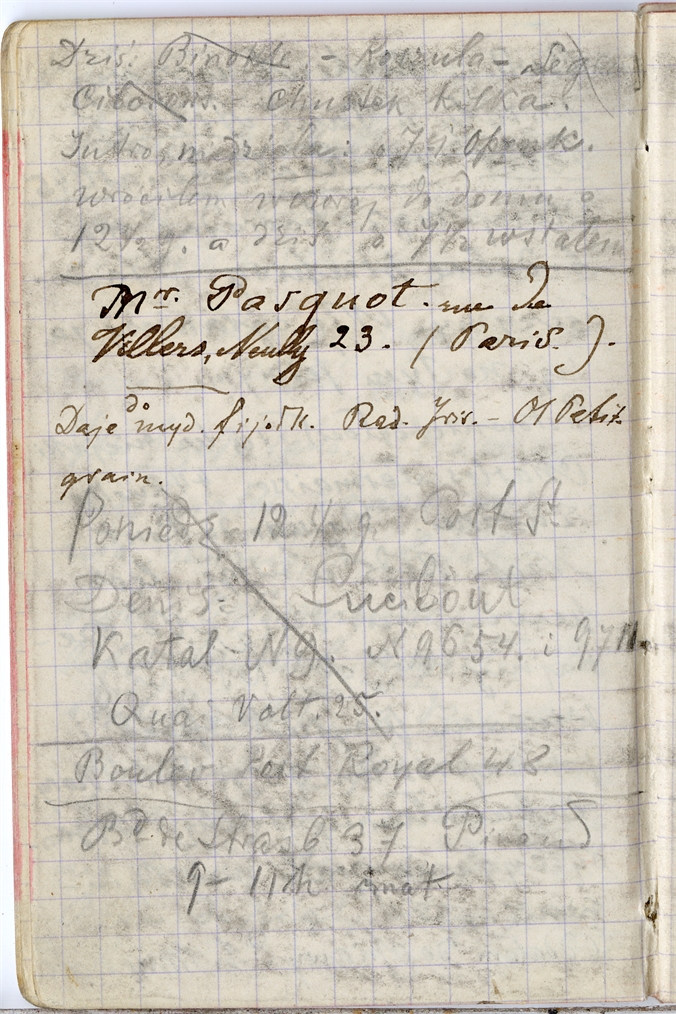 Dziś: Binokle - Koszula -
Chustek kilka.
Jutro niedziela:
wróciłem wczoraj do domu o
12 ½ g. a dziś o 7 ½ wstałem
Mr. Pasquot. rue de
Villers, Neuilly 23. (Paris.).
Daje do myd. Rad. Iris. - Ol Petit
grain.
Poniedz 12 ½ g Port St
Denis.
Katal Ng. N 9654. i 9711
Quai Volt. 25.
Boulev Port Royal 48
Bd de Strasb 37 Pinaud
9 - 11 h